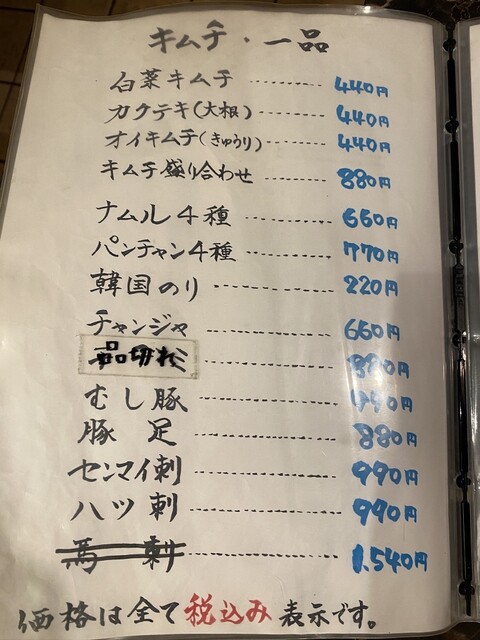 キムチ・一品
白菜キムチ ………… 440円
カクテキ(大根) ………… 440円
オイキムチ(きゅうり) ………… 440円
キムチ盛り合わせ ………… 880円
ナムル4種 ………… 660円
パンチャン4種 ………… 770円
韓国のり ………… 220円
チャンジャ ………… 660円
品切れ ………… 880円
むし豚 ………… 円
豚足 ………… 880円
センマイ刺 ………… 990円
ハツ刺 ………… 990円
馬刺 ………… 1.540円
価格は全て税込み表示です。